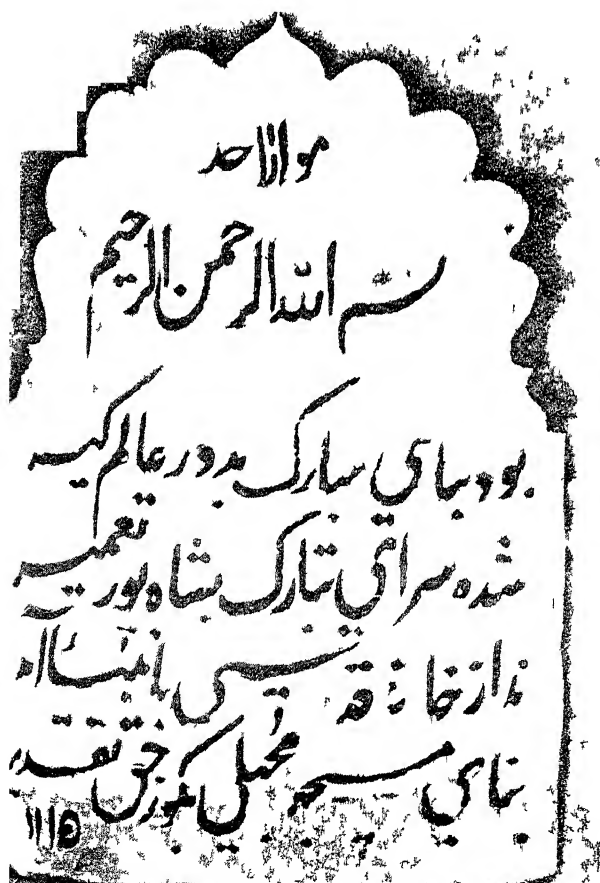 هوالاحد
بسم الله الرحمن الرحيم
بود بنای مبارک بدور عالم کیر
شده سرای تبارک بشاه پور تعمیر
ندا ز خانهٔ قد سی
بنای مسجد بکو ز حق تقدیر
۱۱۱۵